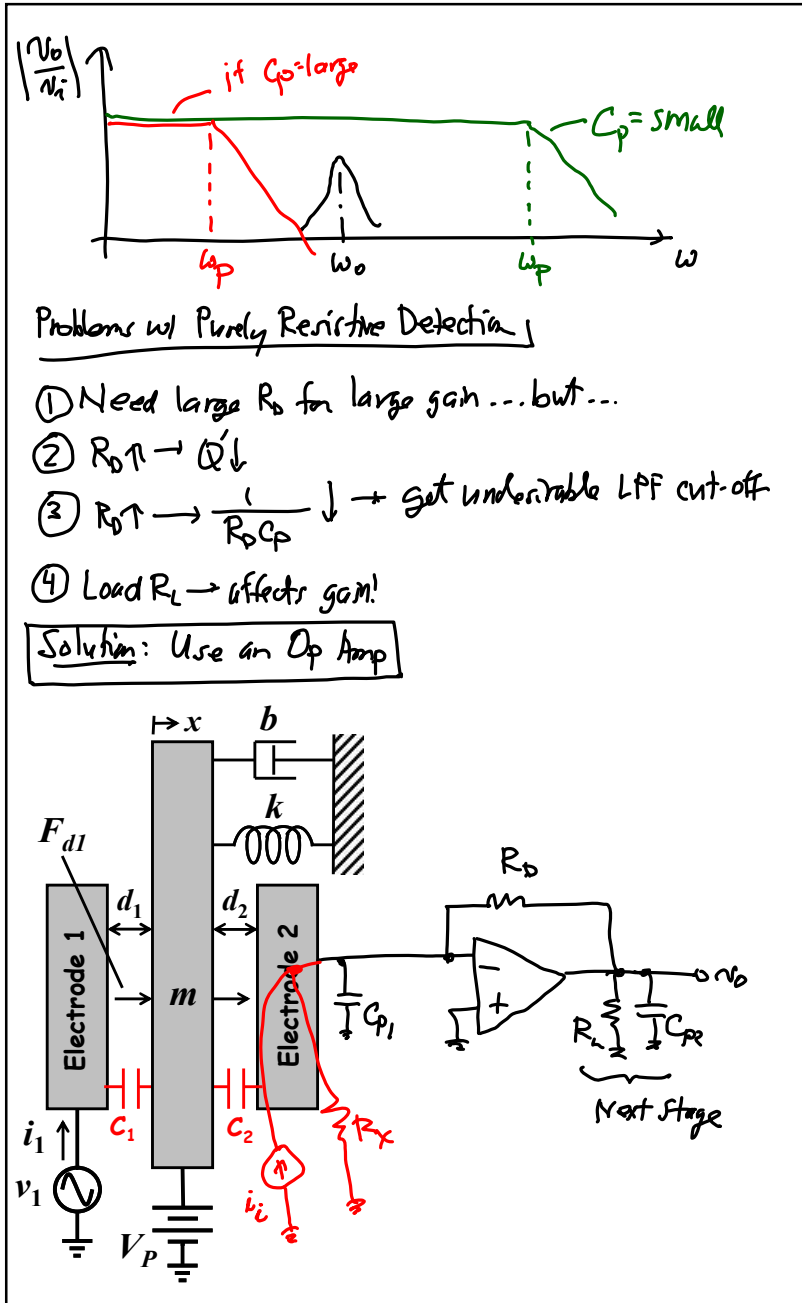 |v₀/vᵢ|
if Cp=large
Cp=small
ωp
ω₀
ωp
ω
Problems w/ Purely Resistive Detection
① Need large R_D for large gain...but...
② R_D↑ → Q'↓
③ R_D↑ → 1/(R_D Cp) ↓ → get undesirable LPF cut-off
④ Load R_L → affects gain!
Solution: Use an Op Amp
x
b
k
F_d1
d₁
d₂
Electrode 1
m
Electrode 2
R_D
−
+
v₀
C_P1
R_L
C_P2
Next stage
C₁
C₂
R_x
i₁
v₁
i_i
V_P